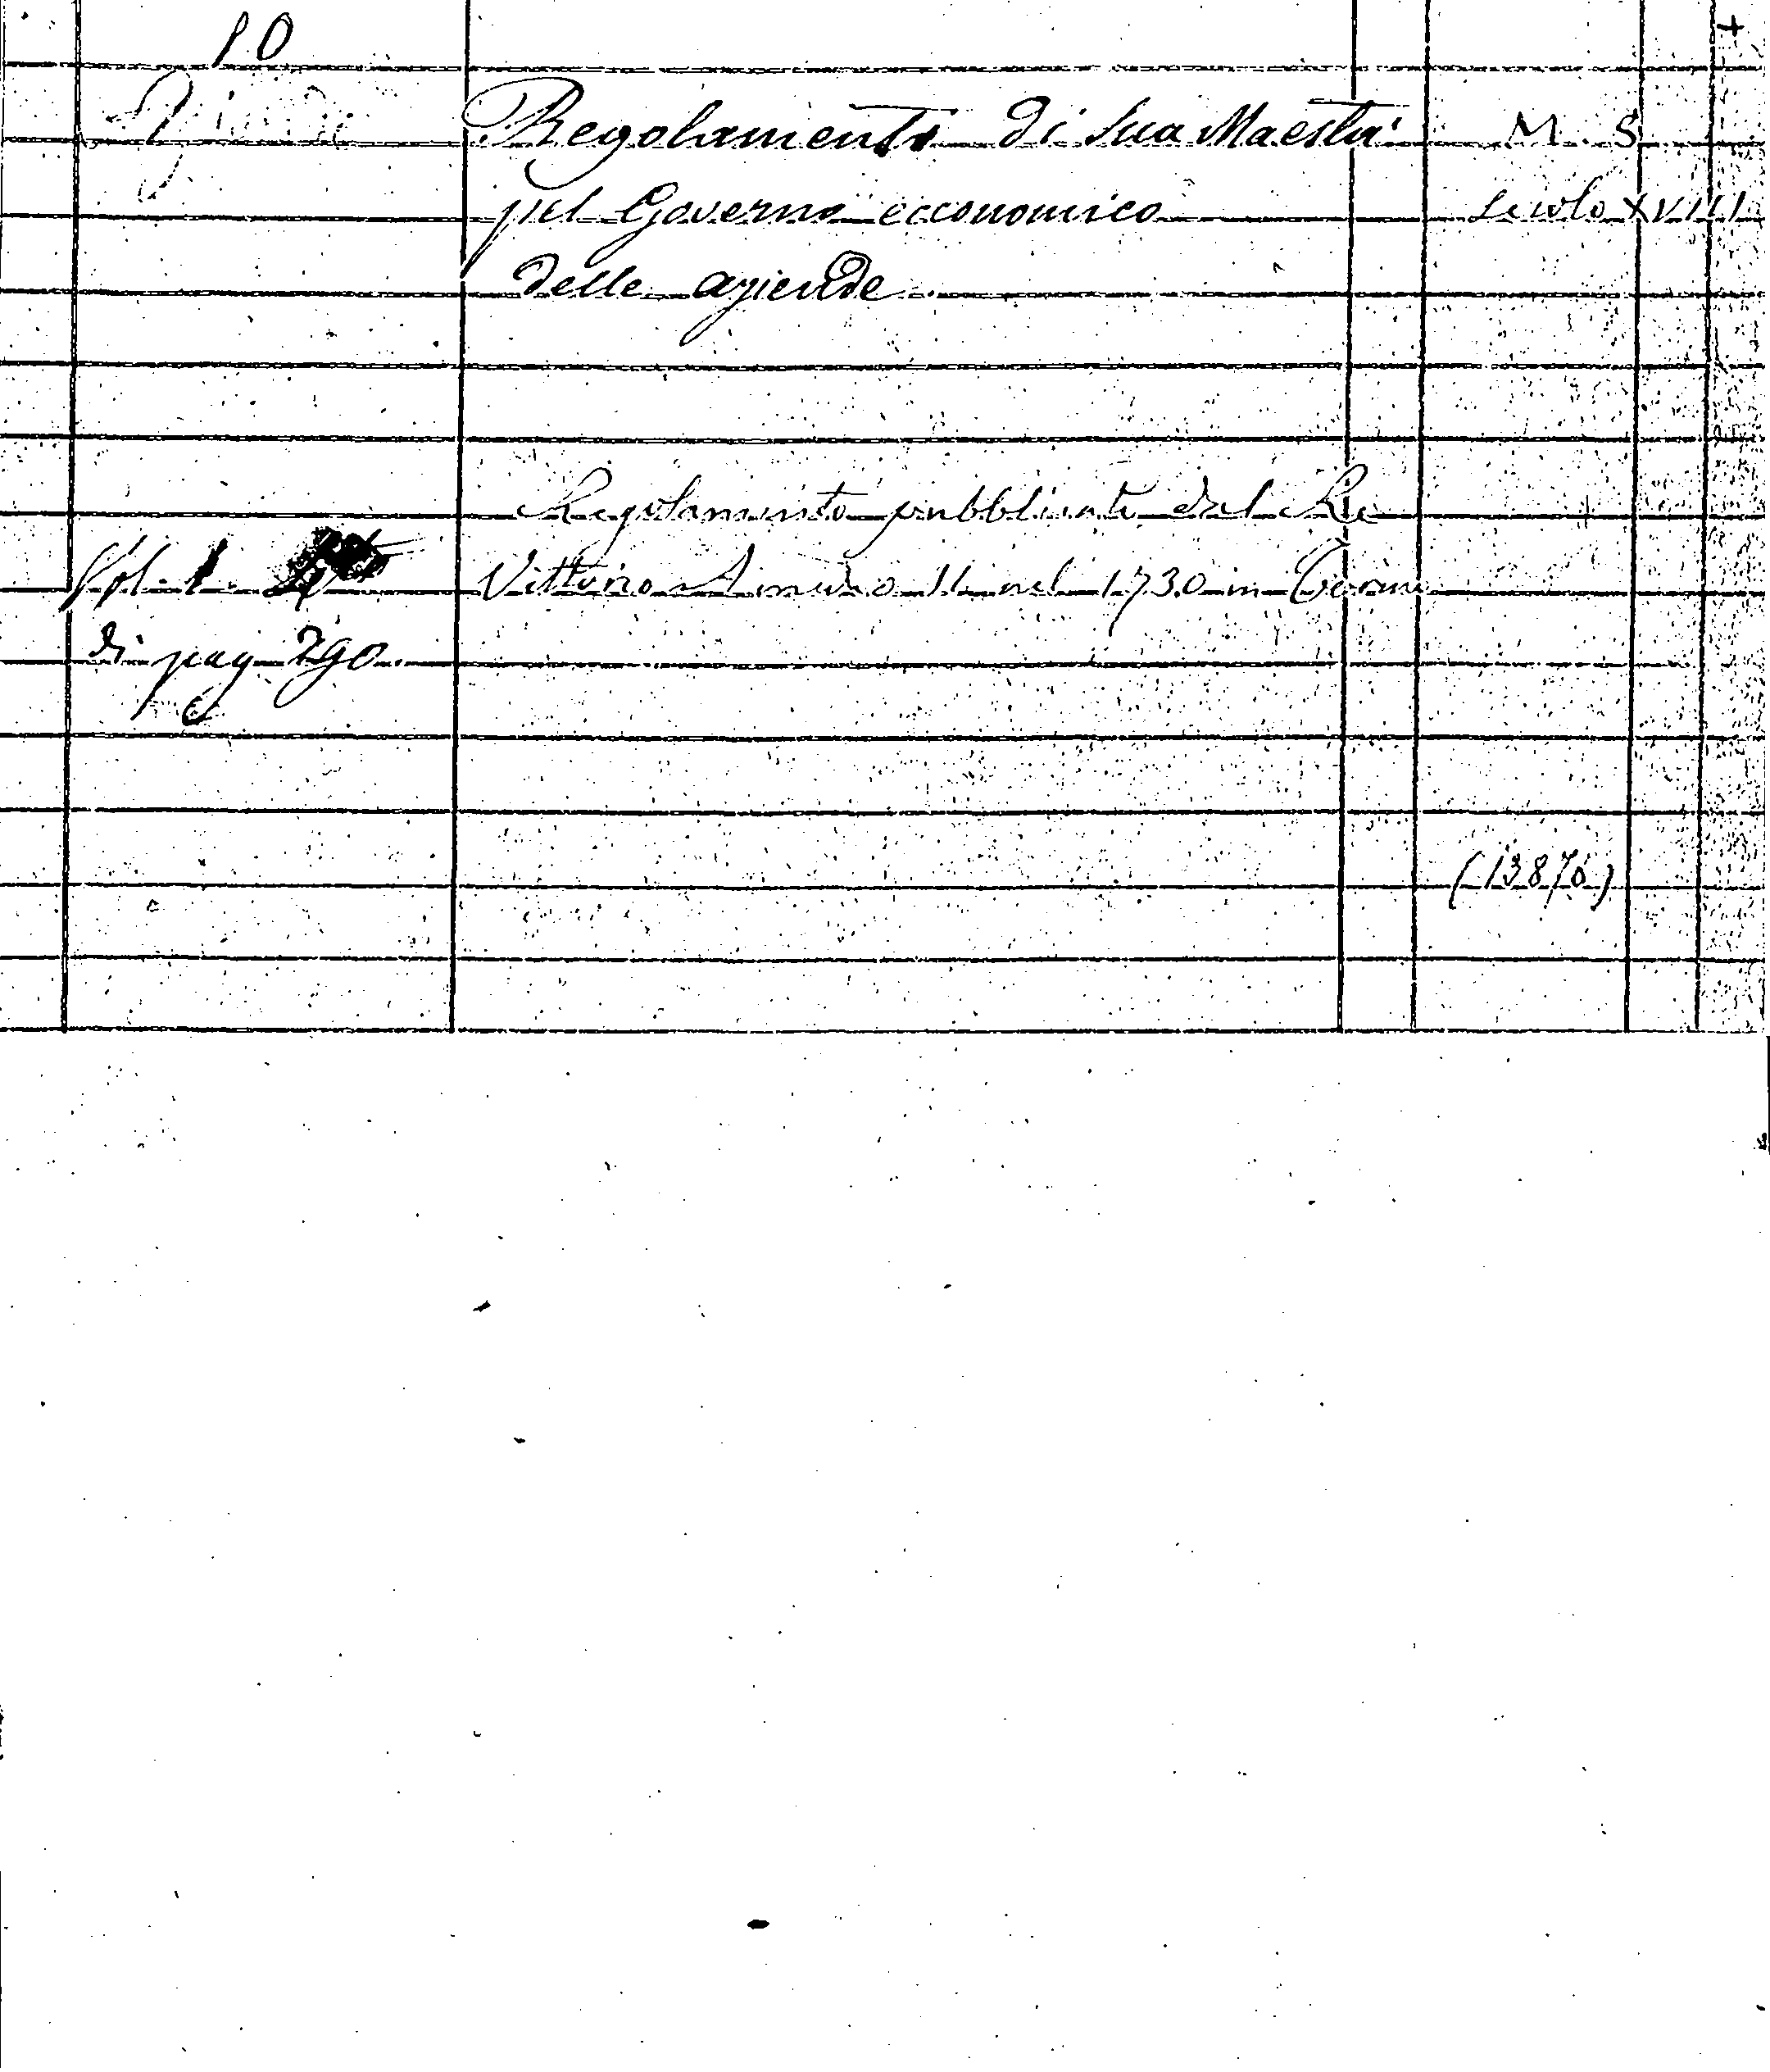 10
+
Regolamento di Sua Maestà M. S.
pel Governo ecconomico Secolo XVIII
delle aziende.
Regolamento pubblicato dal Re
Vol. 1. Vittorio Amedeo II nel 1730 in Torino
di pag 290.
(13876)